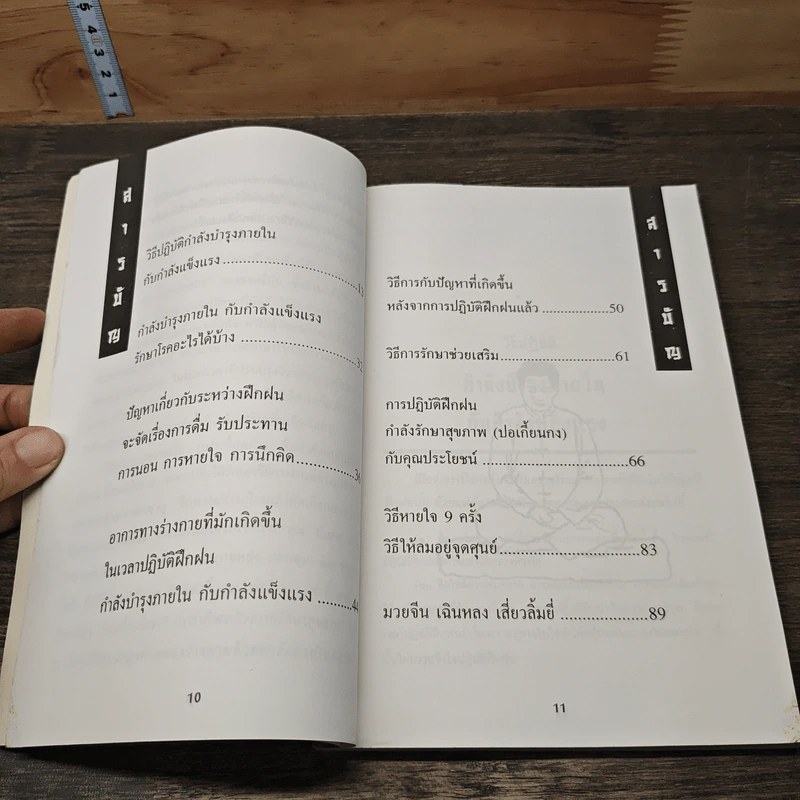 สารบัญ
วิธีปฏิบัติกำลังบำรุงภายใน
กับกำลังแข็งแรง
กำลังบำรุงภายใน กับกำลังแข็งแรง
รักษาโรคอะไรได้บ้าง
ปัญหาเกี่ยวกับระหว่างฝึกฝน
จะจัดเรื่องการดื่ม รับประทาน
การนอน การหายใจ การนึกคิด....................36
อาการทางร่างกายที่มักเกิดขึ้น
ในเวลาปฏิบัติฝึกฝน
กำลังบำรุงภายใน กับกำลังแข็งแรง .........44
10
สารบัญ
วิธีการกับปัญหาที่เกิดขึ้น
หลังจากการปฏิบัติฝึกฝนแล้ว .................50
วิธีการรักษาช่วยเสริม.............................61
การปฏิบัติฝึกฝน
กำลังรักษาสุขภาพ (ปอเกี้ยนกง)
กับคุณประโยชน์ ....................................66
วิธีหายใจ 9 ครั้ง
วิธีให้ลมอยู่จุดศุนย์...................................83
มวยจีน เฉินหลง เสี่ยวลิ้มยี่ .....................89
11
5 4 3 2 1